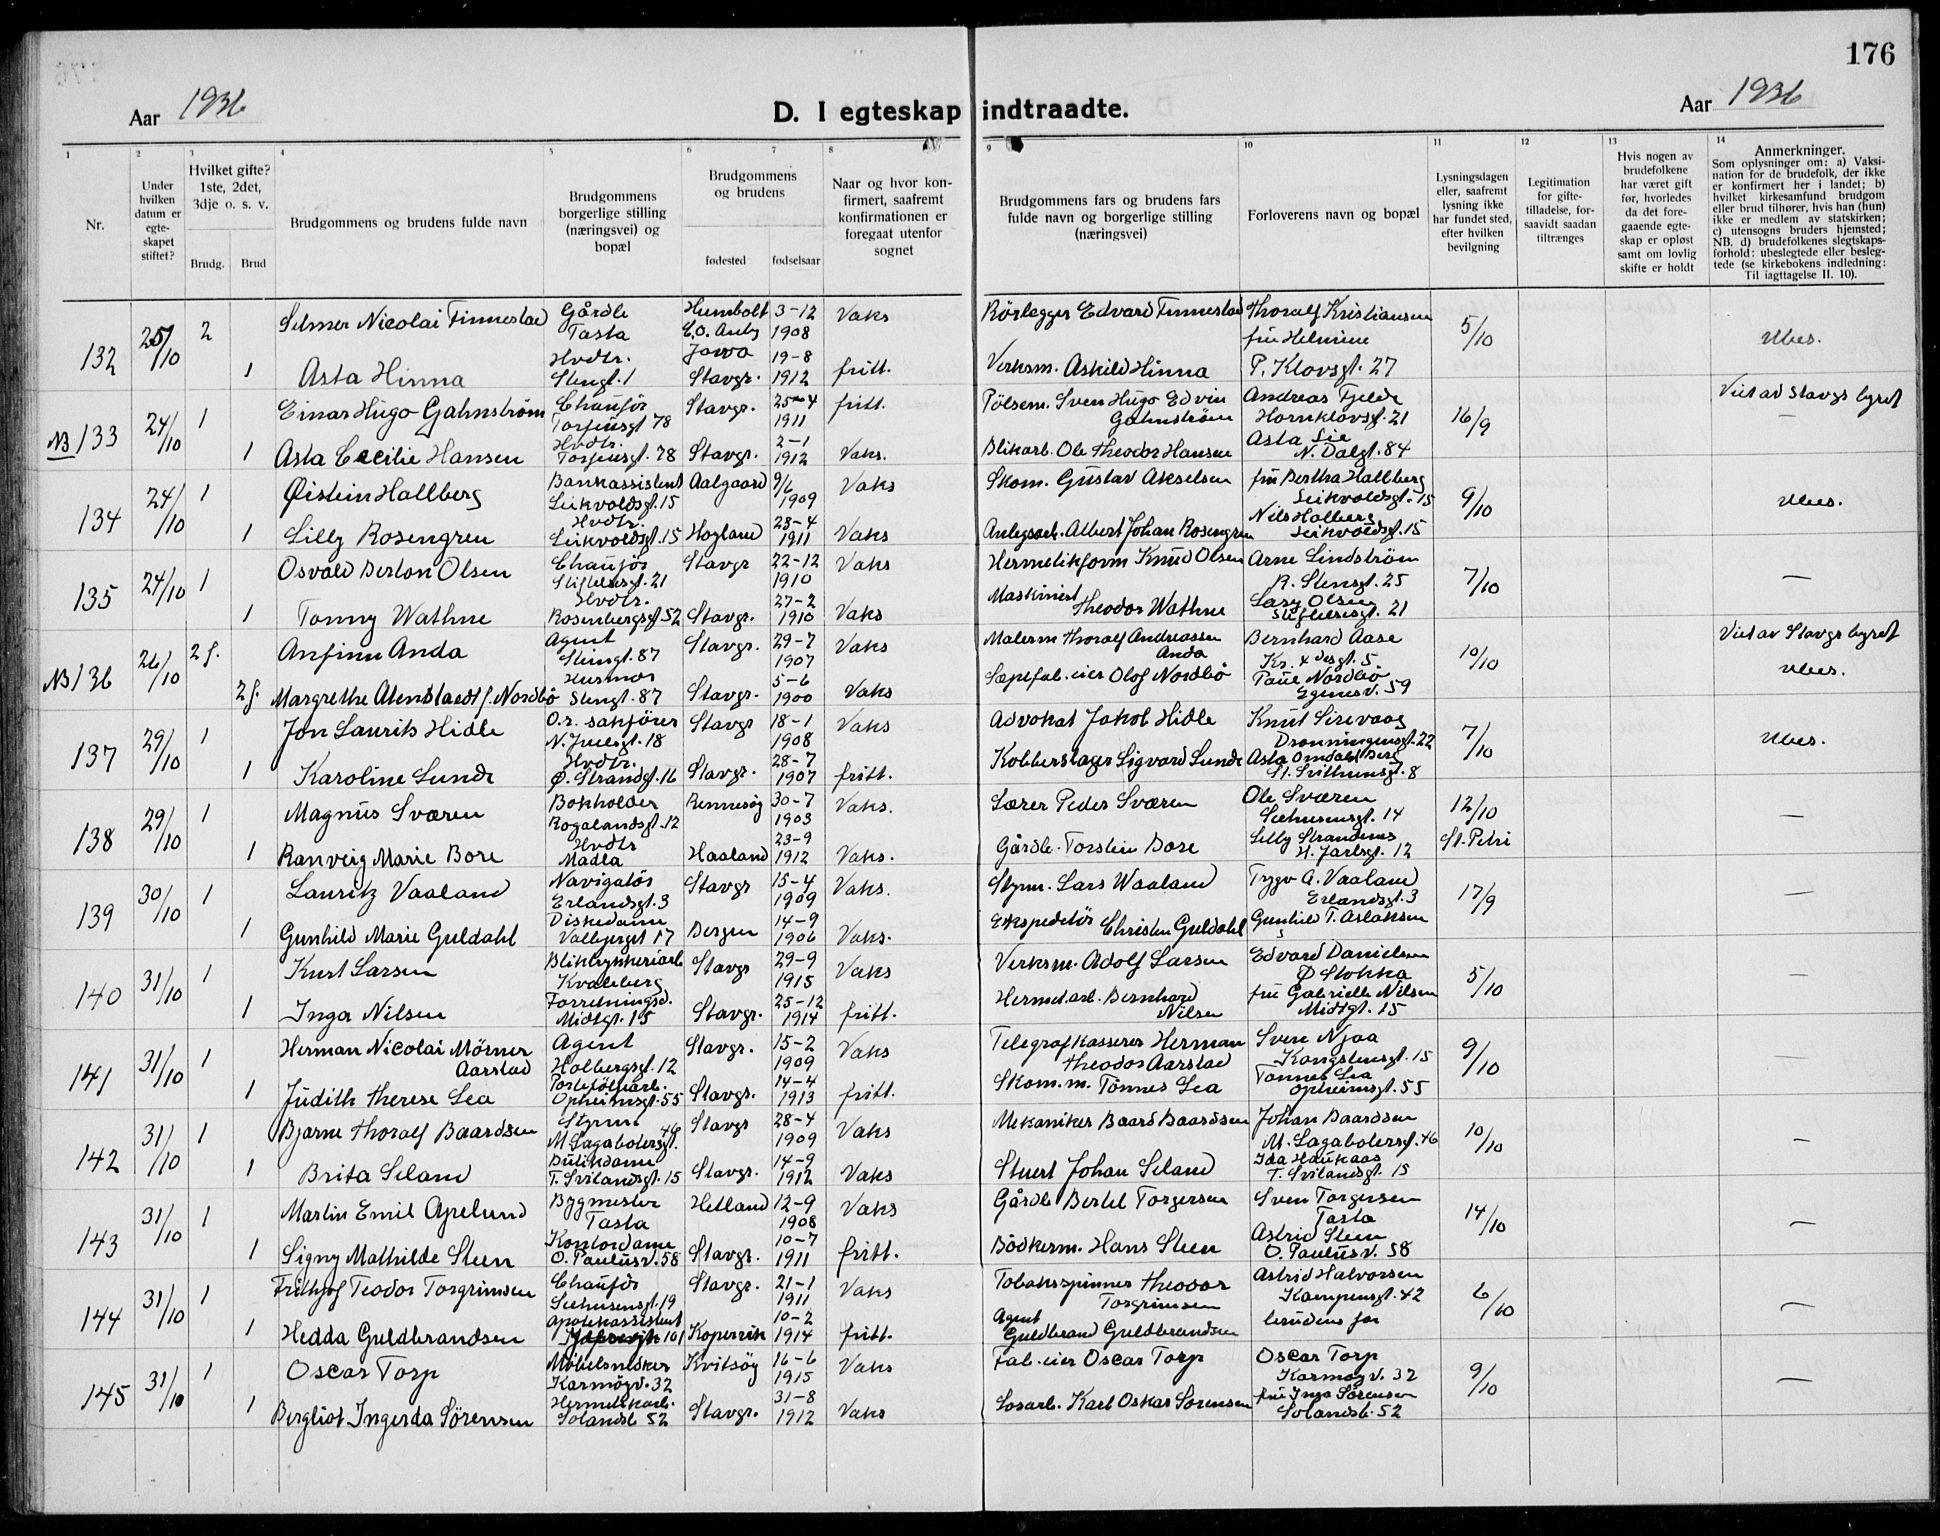 176
Aar 1936
D. I egteskap indtraadte.
Aar 1936
1 2 3 4 5 6 7 8 9 10 11 12 13 14
Nr.
Under hvilken datum er egte-skapet stiftet?
Hvilket gifte? 1ste, 2det, 3dje o. s. v.
Brudg. Brud
Brudgommens og brudens fulde navn
Brudgommens borgerlige stilling (næringsvei) og bopæl
Brudgommens og brudens
fødested fødselsaar
Naar og hvor kon-firmert, saafremt konfirmationen er foregaat utenfor sognet
Brudgommens fars og brudens fars fulde navn og borgerlige stilling (næringsvei)
Forloverens navn og bopæl
Lysningsdagen eller, saafremt lysning ikke har fundet sted, efter hvilken bevilgning
Legitimation for gifte-tilladelse, for-saavidt saadan tiltrænges
Hvis nogen av brudefolkene har været gift før, hvorledes da det fore-gaaende egte-skap er opløst samt om lovlig skifte er holdt
Anmerkninger.
Som oplysninger om: a) Vaksi-nation for de brudefolk, der ikke er konfirmert her i landet; b) hvilket kirkesamfund brudgom eller brud tilhører, hvis han (hun) ikke er medlem av statskirken; c) utensogns bruders hjemsted; NB. d) brudefolkenes slegtskaps-forhold: ubeslegtede eller besleg-tede (se kirkebokens indledning: Til iagttagelse II. 10).
132 25/10 2 Selmer Nicolai Finnestad Gårdb Tasta Humbolt 3-12 1908 Vaks Rörlegger Edvard Finnestad Thoralf Kristiansen 5/10 Ubes.
1 Asta Hinna Hvdtr. Stengt. 1 Stavgr. 19-8 1912 fritt. Verksm. Askild Hinna fru Helmine P. Klovsgt. 27
NB 133 24/10 1 Einar Hugo Gahnström Chauför Torfinsgt 78 Stavgr. 25-4 1911 fritt. Pölsem. Sven Hugo Edvin Gahnström Andreas Fjelde Hornklovsgt. 21 16/9 Viet av Stavgr byret —
1 Asta Cecilie Hansen Hvdtr. Torfinsgt. 78 Stavgr. 2-1 1912 Vaks. Blikarb. Ole Theodor Hansen Asta Lie N. Dalgt. 84
134 24/10 1 Øistein Hallberg Bankassistent Leikvoldsgt. 15 Aalgaard 9/6 1909 Vaks Skom. Gustav Akselsen fru Bertha Hallberg Leikvoldsgt. 15 9/10 Ubes.
1 Lilly Rosengren Hvdtr. Leikvoldsgt. 15 Hogland 23-4 1911 Vaks Anlegsarb. Albert Johan Rosengren Nils Halberg Leikvoldsgt. 15
135 24/10 1 Osvald Berton Olsen Chauför Stiftelsesgt. 21 Stavgr 22-12 1910 Vaks Hermetikform Knud Olsen Arne Lindström R. Stensgt. 25 7/10 —
1 Tonny Wathne Hvdtr. Rosenbergsgt 52 Stavgr. 27-2 1910 Vaks Maskinist Theodor Wathne Lasy Olsen Stiftelsesgt. 21
NB 136 26/10 2 f. Anfinn Anda Agent Stengt. 87 Stavgr. 29-7 1907 Vaks Malerm Thoralf Andreassen Anda Bernhard Aase Kr. 4 desgt. 5 10/10 Viet av Stavgr byret
2 f. Margrethe Alenstaedt f. Nordbö Husmor Stengt. 87 Stavgr. 5-6 1900 Vaks Sæpefab. eier Olof Nordbö Paul Nordbö Egenesv. 59 Ubes.
137 29/10 1 Jon Laurits Hidle O.r. sakförer N. Juelsgt. 18 Stavgr 18-1 1908 Vaks Advokat Jakob Hidle Knut Sirevaag Dronningensgt. 22 7/10 Ubes.
1 Karoline Lunde Hvdtr. Ø. Strandgt. 16 Stavgr. 28-7 1907 fritt. Kobberslager Sigvard Lunde Asta Omdahl Berg St. Svithunsgt. 8
138 29/10 1 Magnus Sværen Bokholder Rogalandsgt. 12 Rennesöy 30-7 1903 Vaks. Lærer Peder Sværen Ole Sværen Seehusensgt. 14 12/10 —
1 Ranveig Marie Bore Hvdtr Madla Haaland 23-9 1912 Vaks. Gårdb. Torstein Bore Lelly Strandenes H. Jarlsgt. 12 St. Petri
139 30/10 1 Lauritz Vaaland Navigatör Erlandsgt. 3 Stavgr 15-4 1909 Vaks. Styrm. Lars Waaland Trygv A. Vaaland Erlandsgt. 3 17/9 —
1 Gunhild Marie Guldahl Diskedame Valbjerget 17 Bergen 14-9 1906 Vaks. Ekspeditör Christen Guldahl Gunhild T. Aslaksen
140 31/10 1 Kurt Larsen Bliktrykkeriarb Kvaleberg Stavgr 29-9 1915 Vaks Verksm. Adolf Larsen Edvard Danielsen Ø Stokka 5/10 —
1 Inga Nilsen Forretningsd. Midtgt. 15 Stavgr. 25-12 1914 fritt. Hermet.arb. Bernhard Nilsen fru Gabrielle Nilsen Midtgt. 15
141 31/10 1 Herman Nicolai Mörner Aarstad Agent Holbergsgt. 12 Stavgr. 15-2 1909 Vaks Telegrafkasserer Herman Theodor Aarstad Sven Njaa Kongstensgt. 15 9/10 —
1 Judith Therese Lea Opheimsgt. 55 Stavgr. 14-4 1913 fritt. Skom.m. Tönnes Lea Tönnes Lea Opheimsgt. 55
142 31/10 1 Bjarne Thoralf Baardsen Styrm M. Lagabötersgt. 46 Stavgr 28-4 1909 Vaks Mekaniker Baard Baardsen Johan Baardsen M. Lagabötersgt. 46 10/10 —
1 Brita Seland Butikdame T. Svilandsgt. 15 Stavgr. 14-9 1912 Vaks Stuert Johan Seland Ida Haukaas T. Svilandsgt. 15
143 31/10 1 Martin Emil Apelund Bygmester Tasta Hetland 12-9 1908 Vaks Gårdb Bertel Torgersen Sven Torgersen Tasta 14/10 —
1 Signy Mathilde Steen Kontordame O. Paulusv. 58 Stavgr. 10-7 1911 fritt. Bödkerm. Hans Steen Astrid Steen O. Paulusv. 58
144 31/10 1 Frithjof Teodor Torgrimsen Chauför Seehusensgt. 19 Stavgr. 21-1 1911 Vaks Tobakspinner Theodor Torgrimsen Astrid Halvorsen Kampensgt. 42 6/10 —
1 Hedda Guldbrandsen Apotekassistent 101 Kopervik 10-2 1914 fritt. Agent Guldbrand Guldbrandsen brudens far
145 31/10 1 Oscar Torp Möbelsnekker Karmöyv. 32 Kvitsöy 16-6 1915 Vaks Fab. eier Oscar Torp Oscar Torp Karmöyv. 32 9/10 —
1 Bergliot Ingerda Sörensen Hermetikarb. Solandsb. 52 Stavgr. 31-8 1912 Vaks Losarb. Karl Oskar Sörensen fru Inga Sörensen Solandsb. 52